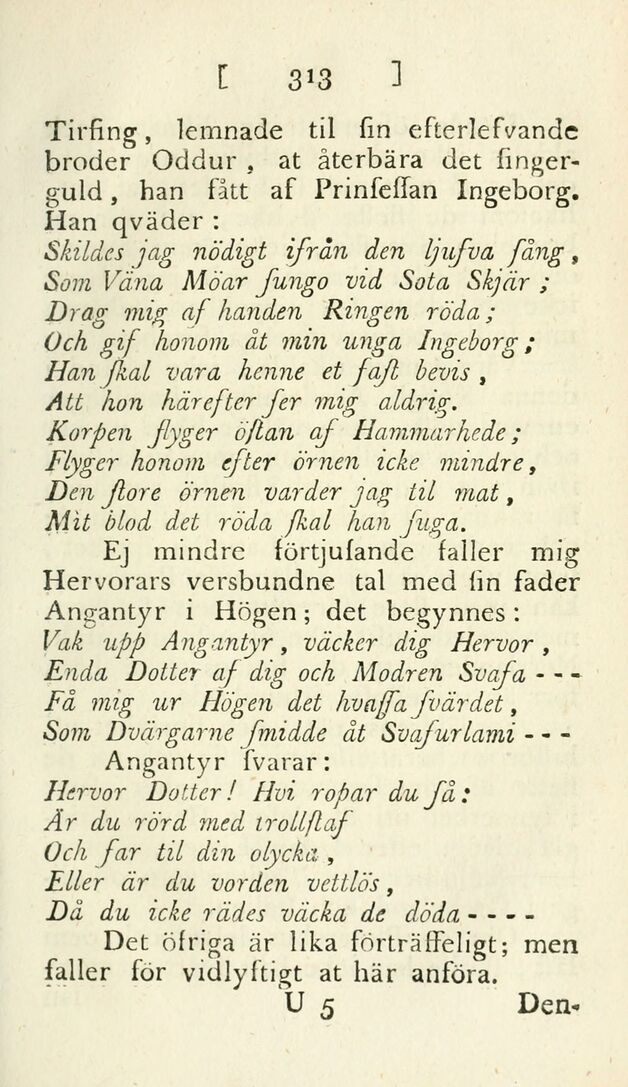 [ 313 ]
Tirſing, lemnade til ſin efterlefvande
broder Oddur, at återbära det ſinger-
guld, han fått af Prinſeſſan Ingeborg.
Han qväder:
Skildes jag nödigt ifrån den ljufva ſång,
Som Väna Möar ſungo vid Sota Skjär;
Drag mig af handen Ringen röda;
Och gif honom åt min unga Ingeborg;
Han ſkal vara henne et faſt bevis,
Att hon härefter ſer mig aldrig.
Korpen flyger öſtan af Hammarhede;
Flyger honom efter örnen icke mindre,
Den ſtore örnen varder jag til mat,
Mit blod det röda ſkal han ſuga.
Ej mindre förtjuſande faller mig
Hervorars versbundne tal med ſin fader
Angantyr i Högen; det begynnes:
Vak upp Angantyr, väcker dig Hervor,
Enda Dotter af dig och Modren Svafa - - -
Få mig ur Högen det hvaſſa ſvärdet,
Som Dvärgarne ſmidde åt Svafurlami - - -
Angantyr ſvarar:
Hervor Dotter! Hvi ropar du ſå:
Är du rörd med trollſtaf
Och far til din olycka,
Eller är du vorden vettlös,
Då du icke rädes väcka de döda - - - -
Det öfriga är lika förträffeligt; men
faller för vidlyftigt at här anföra.
U 5 Den-